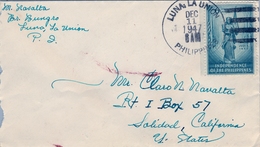 M. Navalta
Bo. Bungro
Luna, La Union
P. I.
LUNA, LA UNION
DEC
11
1947
PHILIPPINES
INDEPENDENCE
OF THE PHILIPPINES
Mrs. Claro N. Navalta
Rt I Box 57
Soledad, California
U. States